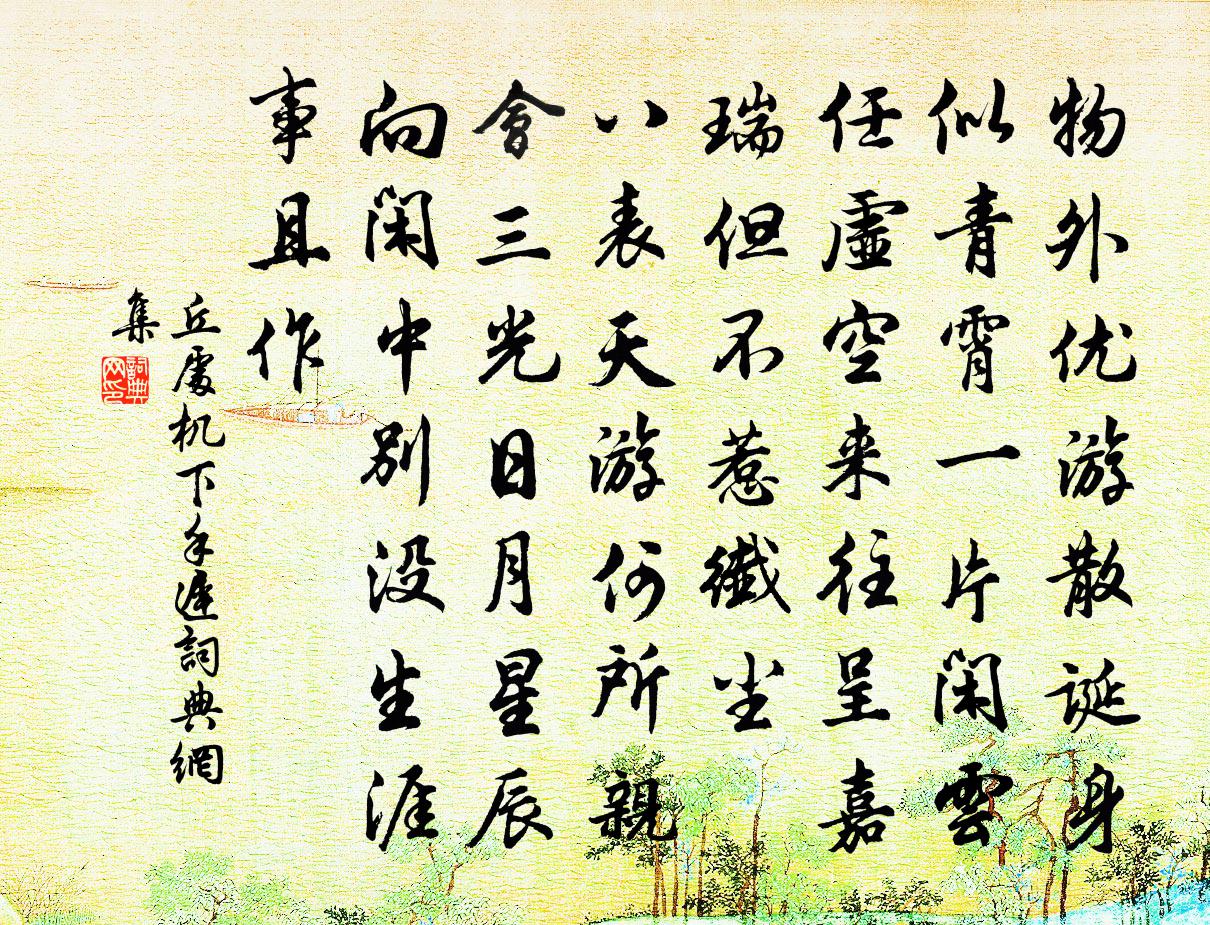 物外优游散誕身
似青霄一片閑雲
任虛空来往呈嘉
瑞但不惹纖尘
八表天游何所親
會三光日月星辰
向閑中别没生涯
事且作
丘處机下手遲詞典網
集
詞典网印